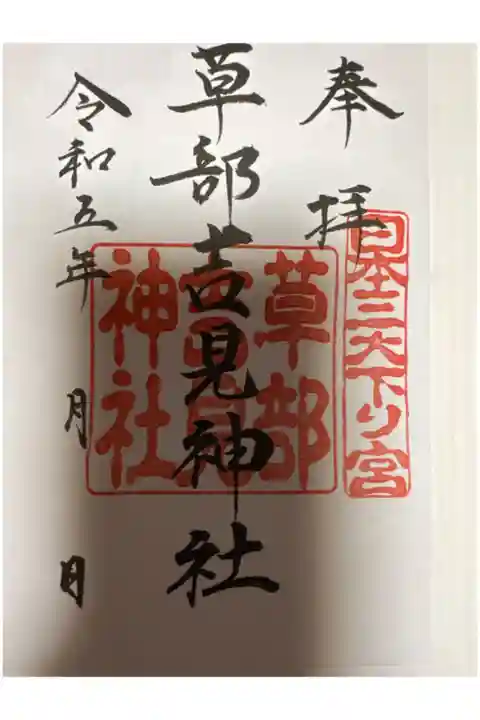 奉拝
日本三大下り宮
草部吉見神社
草部
吉見
神社
令和五年 月 日